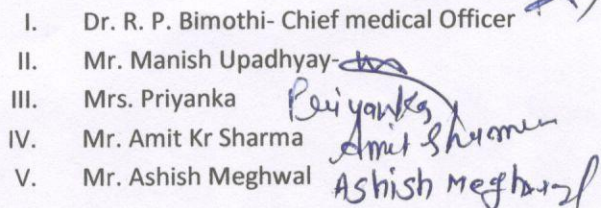 I. Dr. R. P. Bimothi- Chief medical Officer
II. Mr. Manish Upadhyay-
III. Mrs. Priyanka Priyanka
IV. Mr. Amit Kr Sharma Amit Sharma
V. Mr. Ashish Meghwal Ashish Meghwal